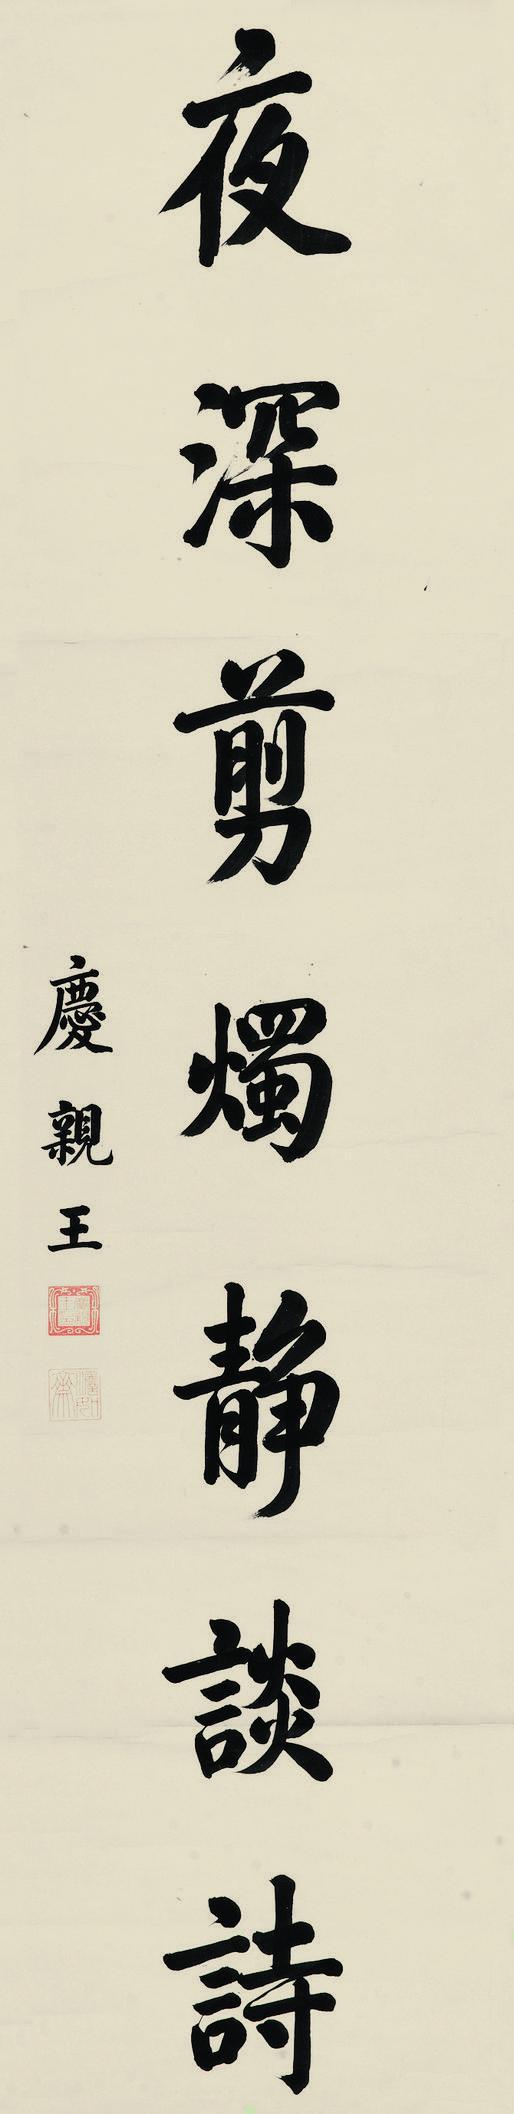 夜深剪燭靜談詩
慶親王